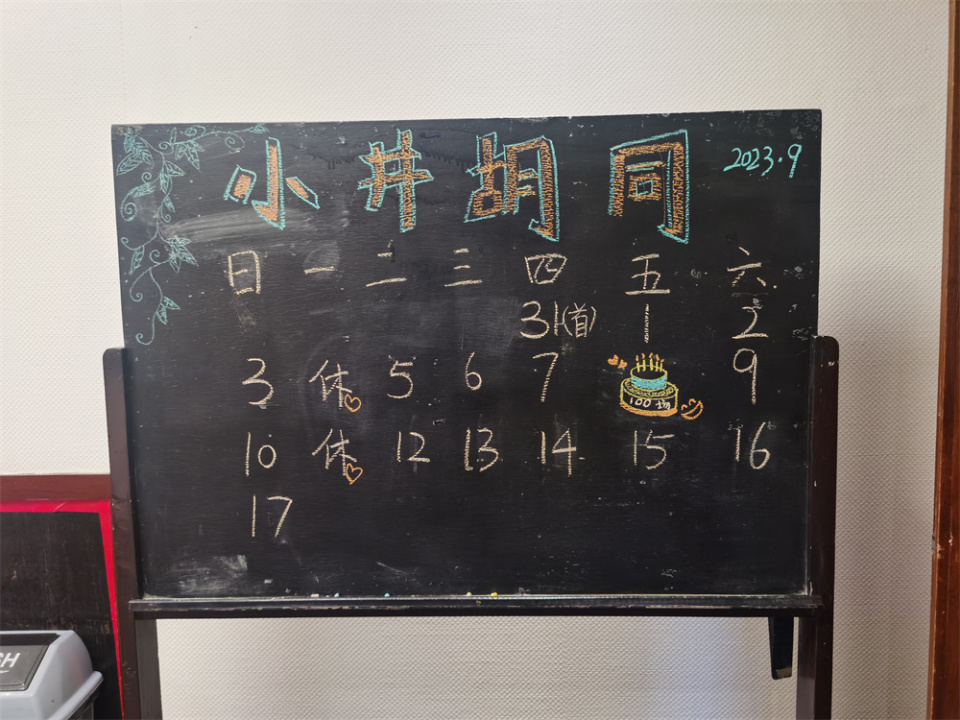 小井胡同
2023.9
日 一 二 三 四 五 六
31(首) 1 2
3 休 5 6 7 100场 9
10 休 12 13 14 15 16
17
SH